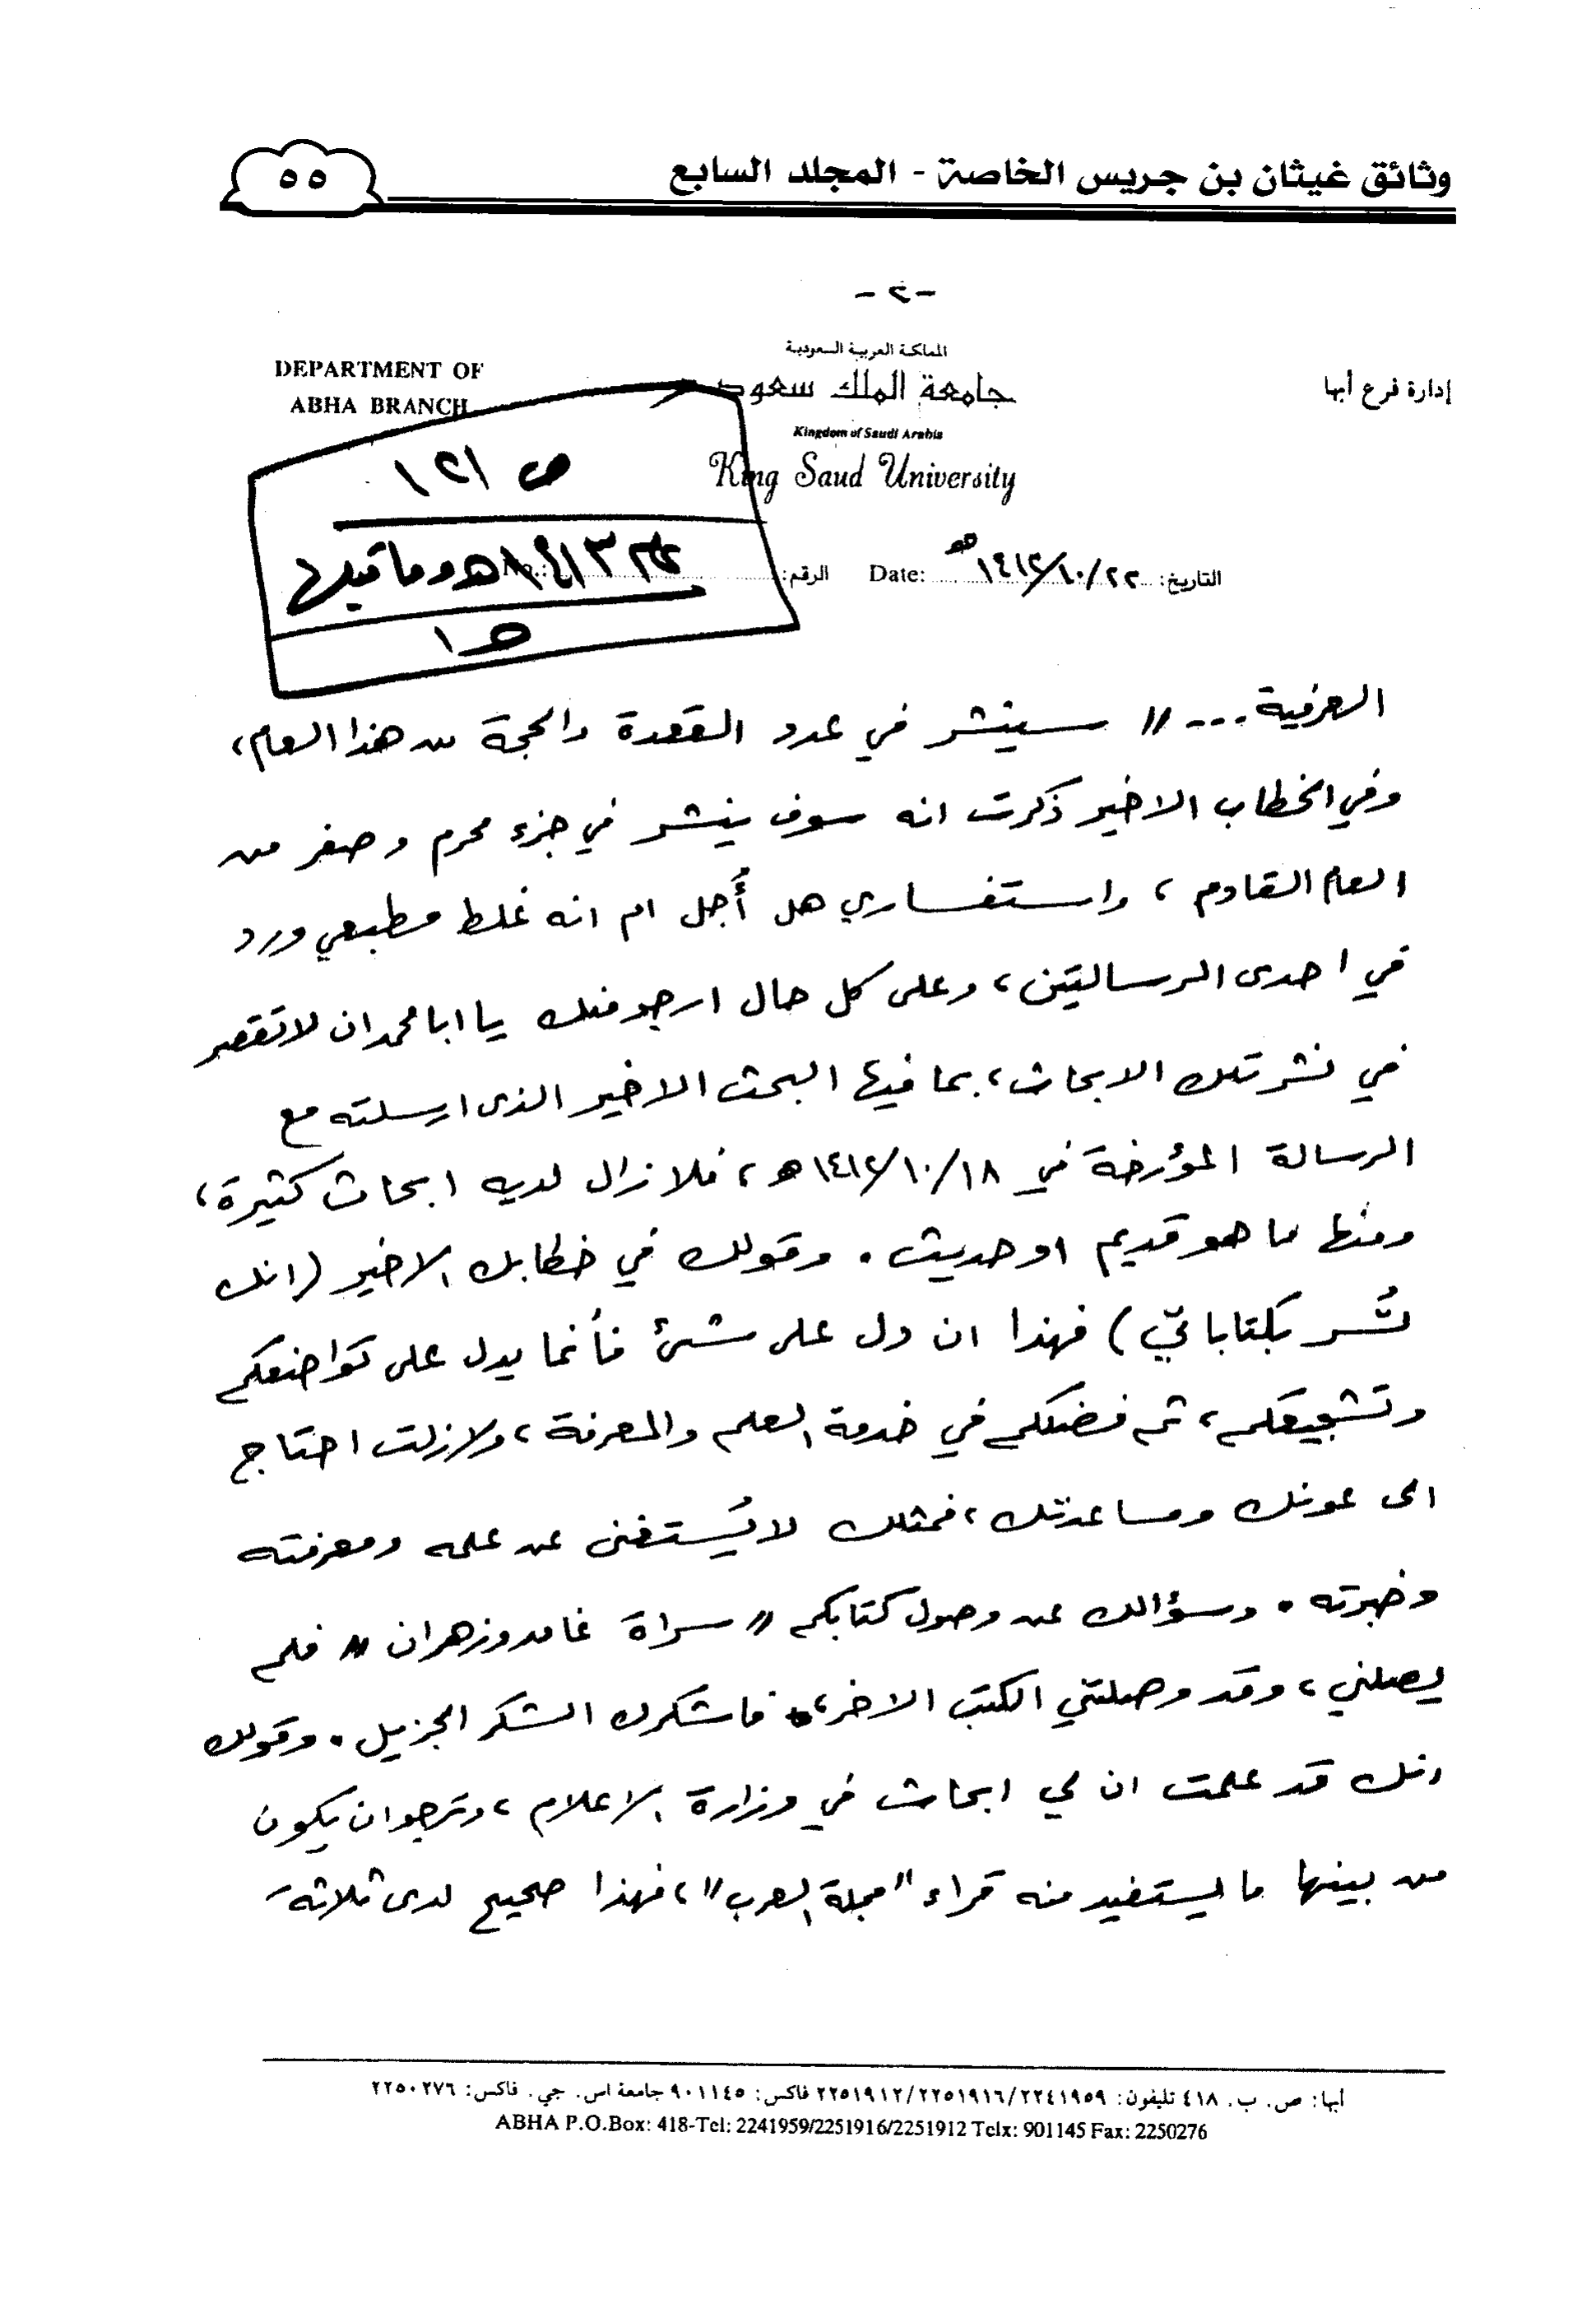 وثائق غيثان بن جريس الخاصة - المجلد السابع
٥٥
-٢-
DEPARTMENT OF
ABHA BRANCH
المملكة العربية السعودية
جامعة الملك سعود
Kingdom of Saudi Arabia
King Saud University
إدارة فرع أبها
ص ١٢١
١٤١٣هـ وما قبلها
هـ ١
التاريخ: ١٤١٢/١٠/٢٢هـ Date: الرقم: No.:
العرفية ... " سينشر في عدد القعدة والحجة من هذا العام،
وفي الخطاب الاخير ذكرت انه سوف ينشر في جزء محرم وصفر من
العام القادم ، واستفساري هل أُجل ام انه غلط مطبعي ورد
في احدى الرسالتين ، وعلى كل حال ارجو منك يا ابا محمد ان لا تقصر
في نشر تلك الابحاث ، بما فيها البحث الاخير الذى ارسلته مع
الرسالة المؤرخة في ١٤١٢/١٠/١٨هـ ، فلا زال لديه ابحاث كثيرة ،
ومنها ما هو قديم او حديث . وقولك في خطابك الاخير (انك
تُسر بكتاباتي) فهذا ان دل على شئ فأنما يدل على تواضعكم
وتشجيعكم ، ثم فضلكم في خدمة العلم والمعرفة ، ولازلت احتاج
الى عونك ومساعدتك ، فمثلك لا يُستغنى عن علمه ومعرفته
وخبرته . وسؤالك عن وصول كتابكم " سراة غامد وزهران " فلم
يصلني ، وقد وصلتني الكتب الاخر ، فاشكرك الشكر الجزيل . وقولك
انك قد علمت ان لي ابحاث في وزارة الاعلام ، وترجو ان يكون
من بينها ما يستفيد منه قراء " مجلة العرب " ، فهذا صحيح لدى ثلاثة
أبها: ص. ب. ٤١٨ تليفون: ٢٢٥١٩١٢/٢٢٥١٩١٦/٢٢٤١٩٥٩ فاكس: ٩٠١١٤٥ جامعة اس. جي. فاكس: ٢٢٥٠٢٧٦
ABHA P.O.Box: 418-Tel: 2241959/2251916/2251912 Telx: 901145 Fax: 2250276